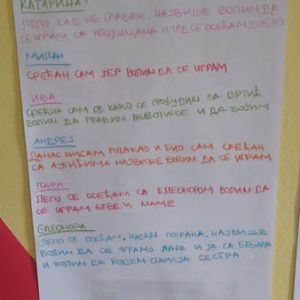 КАТАРИНА:
ЛЕПО КАД НЕ СПАВАМ, НАЈВИШЕ ВОЛИМ ДА
СЕ ИГРАМ СА КОЦКИЦАМА И ТАД СЕ ОСЕЋАМ ДОБРО
МИЛАН
СРЕЋАН САМ ЈЕР ВОЛИМ ДА СЕ ИГРАМ
ИВА
СРЕЋНА САМ СЕ КАКО СЕ ПРОБУДИМ ЗА ВРТИЋ
ВОЛИМ ДА ПРАВИМ ЖИВОТИЊЕ И ДА БОЈИМ
АНДРЕЈ
ДАНАС НИСАМ ПЛАКАО И БИО САМ СРЕЋАН
СА АУТИЋИМА НАЈВИШЕ ВОЛИМ ДА СЕ ИГРАМ
ЛЕПО СЕ ОСЕЋАМ СА ЕЛЕОНОРОМ ВОЛИМ ДА
СЕ ИГРАМ БЕБЕ И МАМЕ
ЕЛЕОНОРА
ЛЕПО СЕ ОСЕЋАМ, НИСАМ НАЈВИШЕ
ВОЛИМ ДА СЕ ИГРАМО ЛАРА И ЈА СА БЕБАМА
И ВОЛИМ ДА БУДЕМ СТАРИЈА СЕСТРА